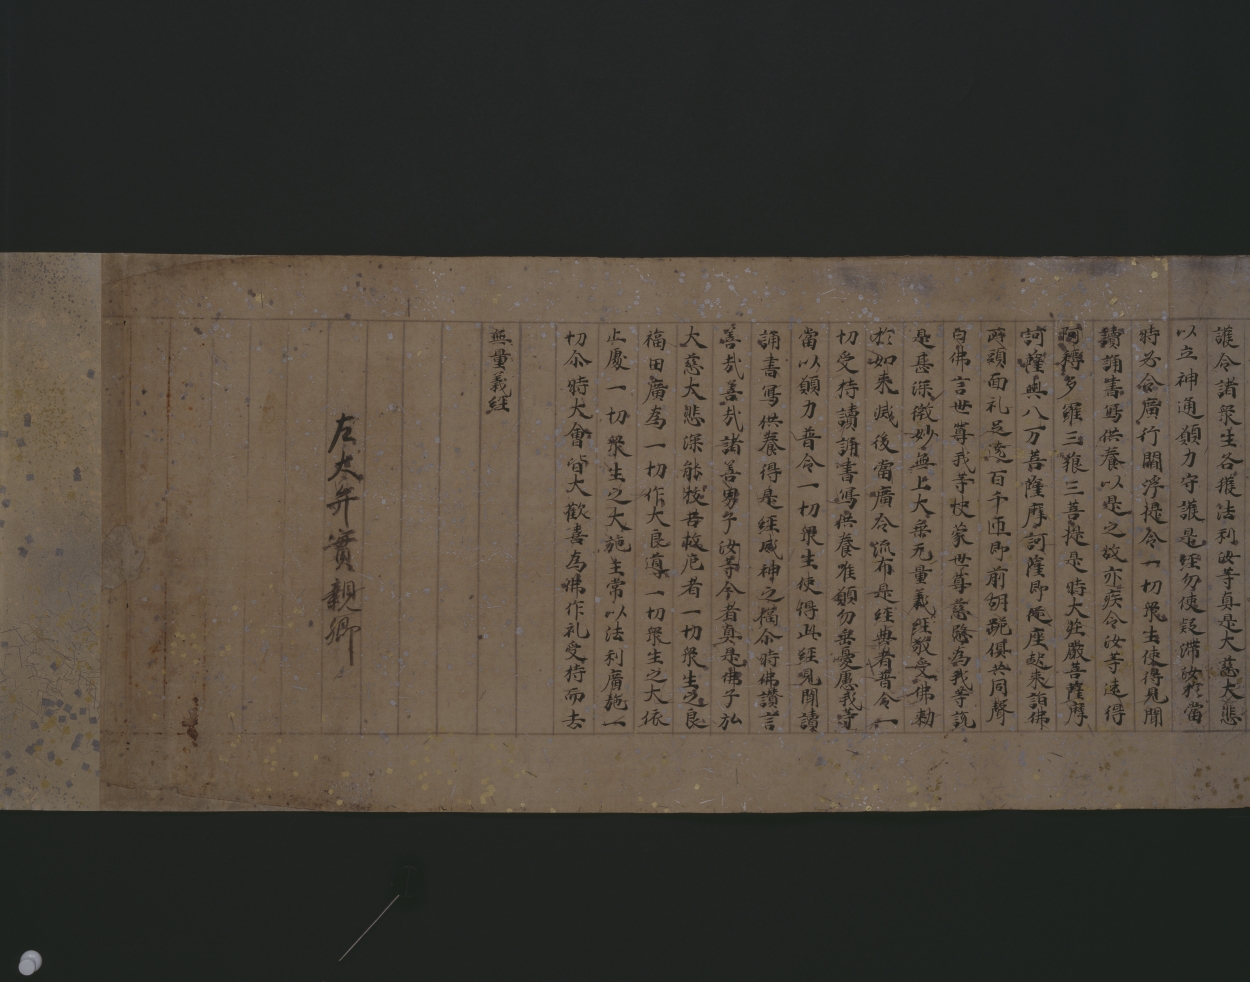 護令諸衆生各獲法利汝等真是大慈大悲
以立神通願力守護是経勿使疑滞汝於當
時必令廣行閻浮提令一切衆生使得見聞
讀誦書寫供養以是之故亦疾令汝等速得
阿耨多羅三藐三菩提是時大莊嚴菩薩摩
訶薩與八万菩薩摩訶薩即従座起来詣佛
所頭面礼足遶百千匝即前胡跪俱共同聲
白佛言世尊我等快蒙世尊慈愍為我等說
是甚深微妙無上大乗无量義経敬受佛勅
於如来滅後當廣令流布是経典者普令一
切受持讀誦書寫供養唯願勿垂憂慮我等
當以願力普令一切衆生使得此経見聞讀
誦書寫供養得是経威神之福尒時佛讃言
善哉善哉諸善男子汝等今者真是佛子弘
大慈大悲深能拔苦救厄者一切衆生之良
福田廣為一切作大良導一切衆生之大依
止處一切衆生之大施主常以法利廣施一
切尒時大會皆大歡喜為佛作礼受持而去
無量義経
左大弁實親卿